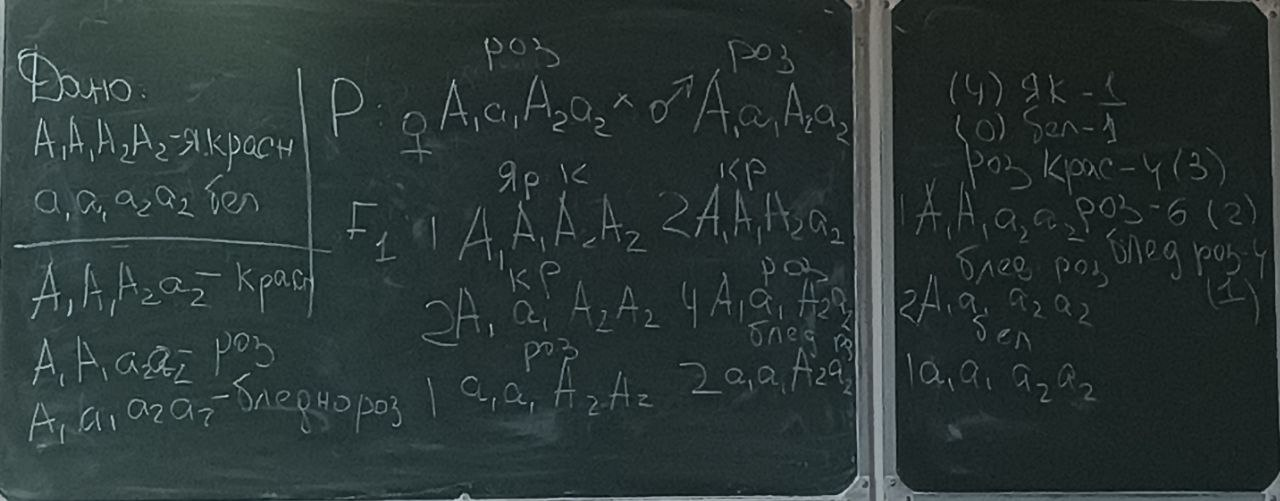 Дано:
A₁A₁A₂A₂ - я.красн
a₁a₁a₂a₂ бел
A₁A₁A₂a₂ - красн
A₁A₁a₂a₂ - роз
A₁a₁a₂a₂ - бледнороз
роз роз
P: ♀ A₁a₁A₂a₂ × ♂ A₁a₁A₂a₂
яр к кр
F₁: 1 A₁A₁A₂A₂ 2A₁A₁A₂a₂
кр роз
2A₁a₁A₂A₂ 4A₁a₁A₂a₂
роз блед роз
1 a₁a₁A₂A₂ 2a₁a₁A₂a₂
(4) як - 1
(0) бел - 1
роз крас - 4 (3)
1A₁A₁a₂a₂ роз - 6 (2)
блед роз блед роз - 4
2A₁a₁a₂a₂ (1)
бел
1a₁a₁a₂a₂